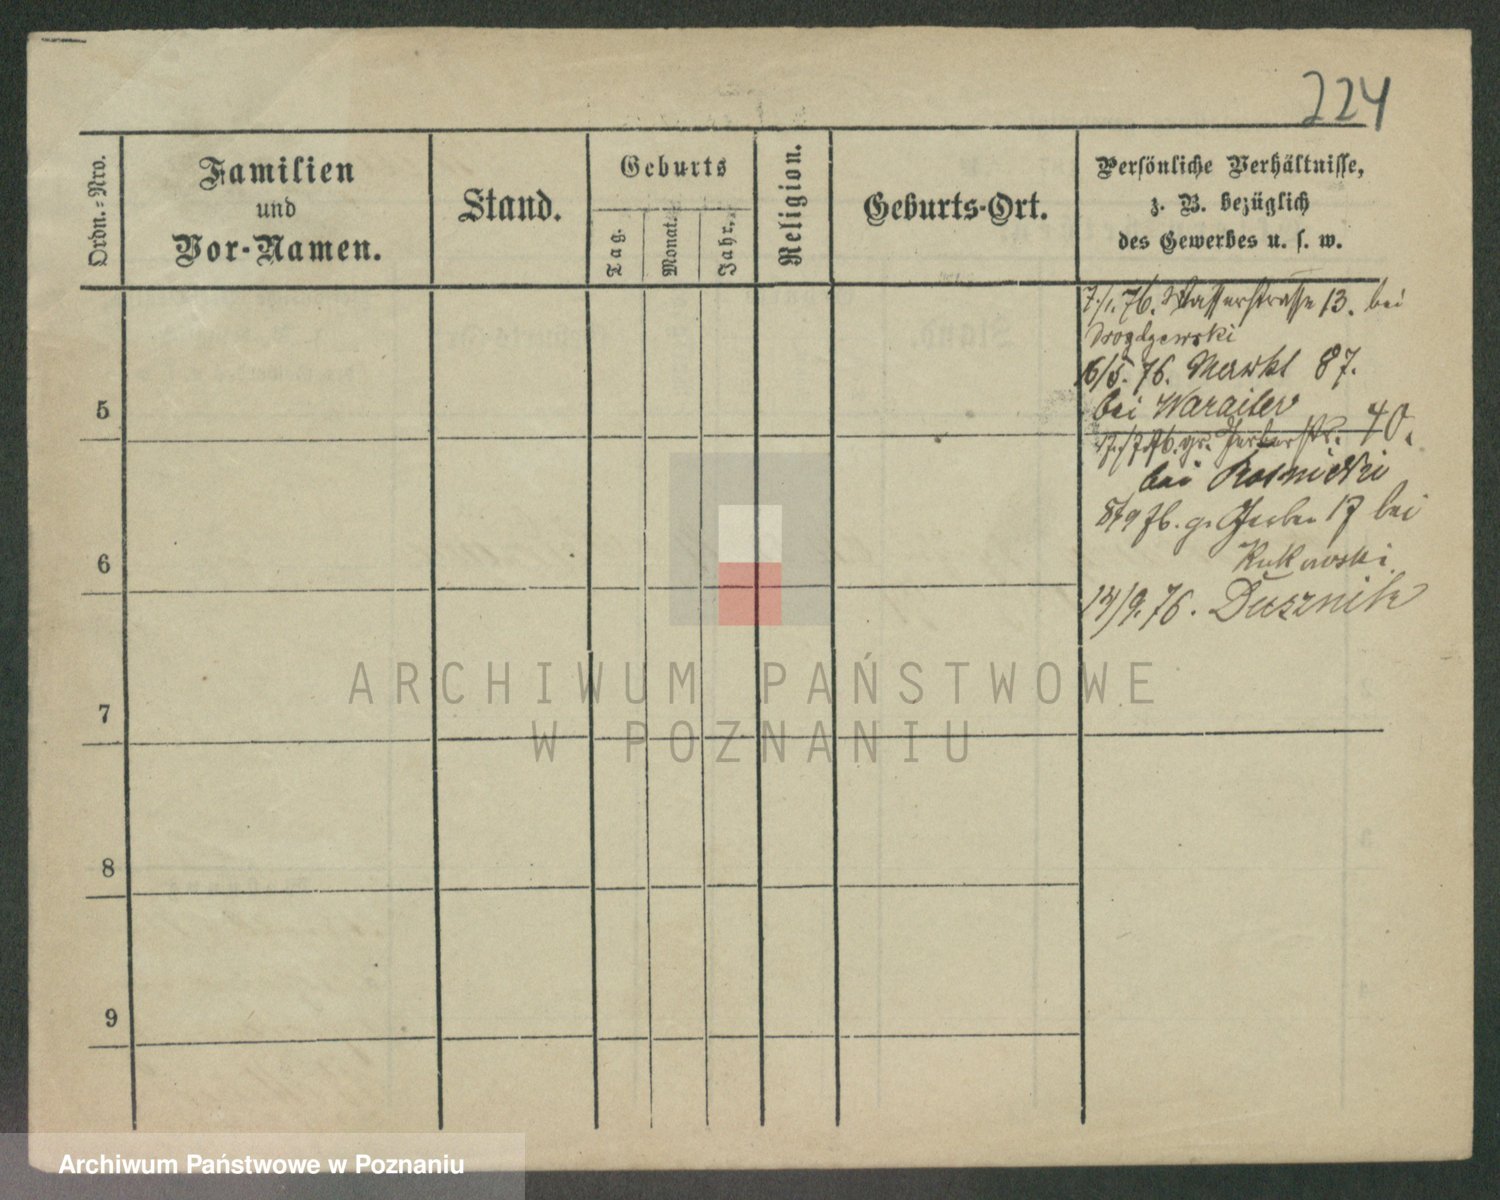 224
Ordn.-Nro.
Familien
und
Vor-Namen.
Stand.
Geburts
Tag.
Monat.
Jahr.
Religion.
Geburts-Ort.
Persönliche Verhältnisse,
z. B. bezüglich
des Gewerbes u. s. w.
7./1. 76. Wasserstrasse 13. bei
16/5. 76. Markt 87.
bei
5
gr. Gerberstr. 40.
bei Rosnicki
8/9 76. gr Gerber 17 bei
6
Rukowski
14/9. 76. Dusznik
7
8
9
ARCHIWUM PAŃSTWOWE
W POZNANIU
Archiwum Państwowe w Poznaniu